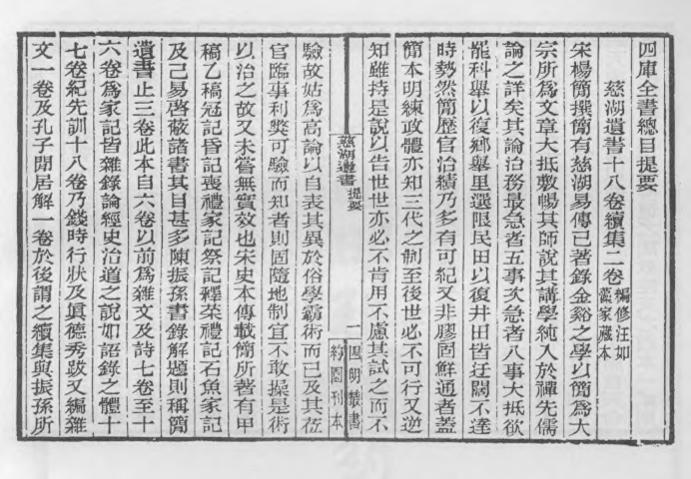 四庫全書總目提要
慈湖遺書十八卷續集二卷 編修汪如藻家藏本
宋楊簡撰簡有慈湖易傳已著錄金谿之學以簡爲大
宗所爲文章大抵敷暢其師說其講學純入於禪先儒
論之詳矣其論治務最急者五事次急者八事大抵欲
罷科舉以復鄉舉里選限民田以復井田皆迂闊不達
時勢然簡歷官治績乃多有可紀又非膠固鮮通者蓋
簡本明練政體亦知三代之制至後世必不可行又逆
知雖持是說以告世世亦必不肯用不慮其試之而不
慈湖遺書 提要
一
四明叢書
約園刊本
驗故姑爲高論以自表其異於俗學霸術而已及其莅
官臨事利獘可驗而知者則固隨地制宜不敢操是術
以治之故又未嘗無實效也宋史本傳載簡所著有甲
稿乙稿冠記昏記喪禮家記祭記釋菜禮記石魚家記
及己易啓蔽諸書其目甚多陳振孫書錄解題則稱簡
遺書止三卷此本自六卷以前爲雜文及詩七卷至十
六卷爲家記皆雜錄論經史治道之說如語錄之體十
七卷紀先訓十八卷乃錢時行狀及眞德秀跋又編雜
文一卷及孔子閒居解一卷於後謂之續集與振孫所